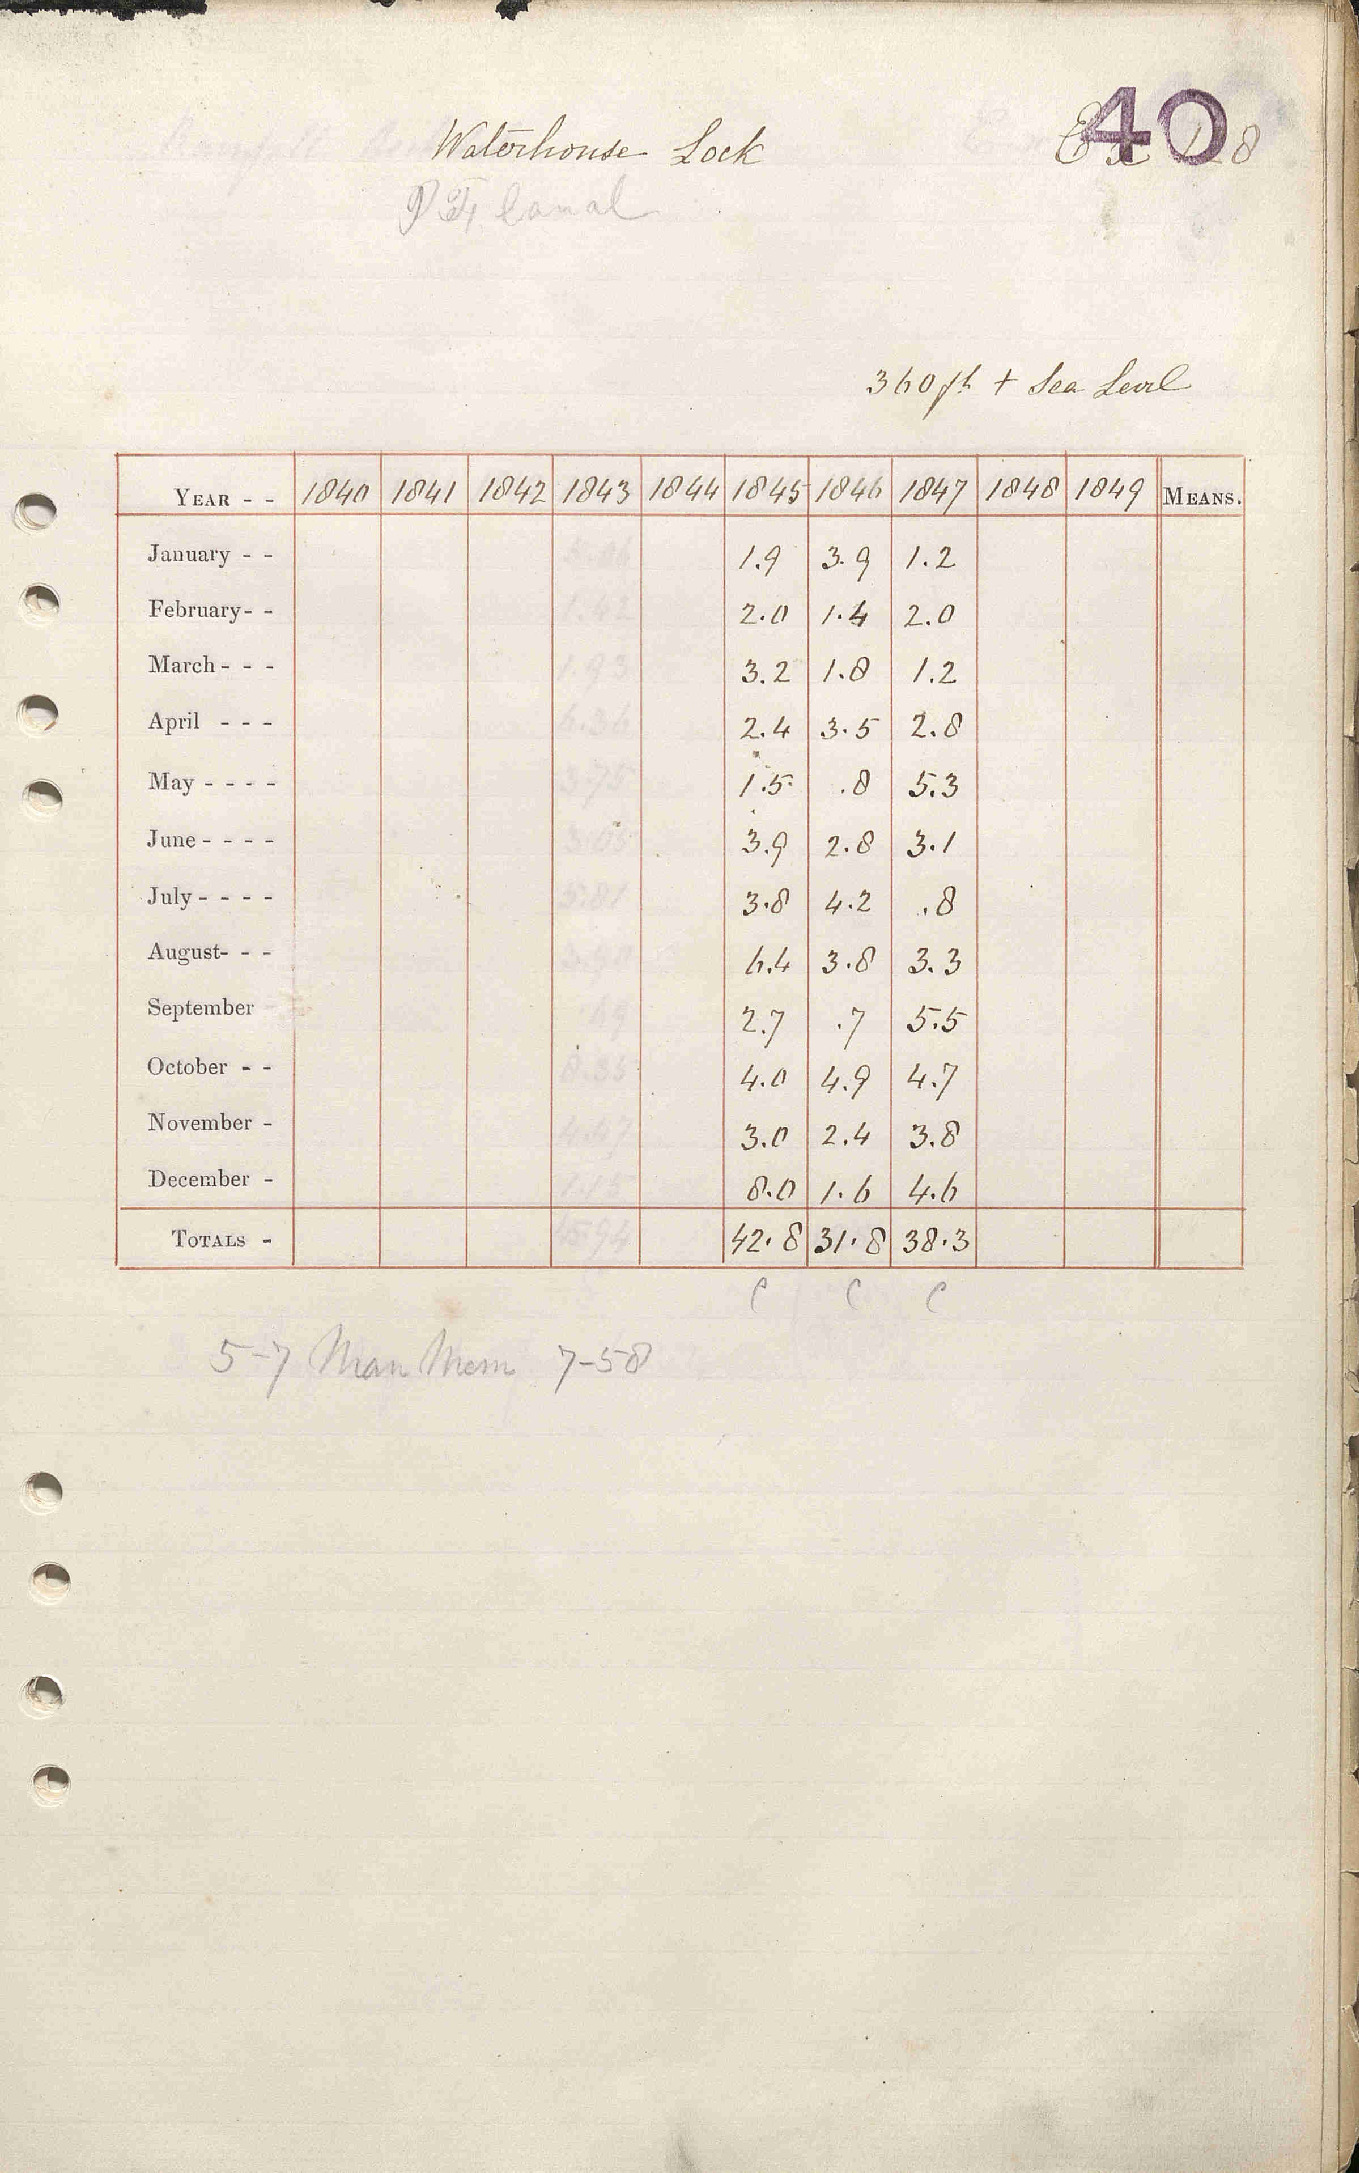 Waterhouse Lock
40
8
Canal
360 ft + Sea Level
YEAR - - 1840 1841 1842 1843 1844 1845 1846 1847 1848 1849 MEANS.
January - - 1.9 3.9 1.2
February - - 2.0 1.4 2.0
March - - - 3.2 1.8 1.2
April - - - 2.4 3.5 2.8
May - - - - 1.5 .8 5.3
June - - - - 3.9 2.8 3.1
July - - - - 3.8 4.2 .8
August - - - 6.4 3.8 3.3
September - 2.7 .7 5.5
October - - 4.0 4.9 4.7
November - 3.0 2.4 3.8
December - 8.0 1.6 4.6
TOTALS - 42.8 31.8 38.3
C C C
5-7 Man Mem 7-58